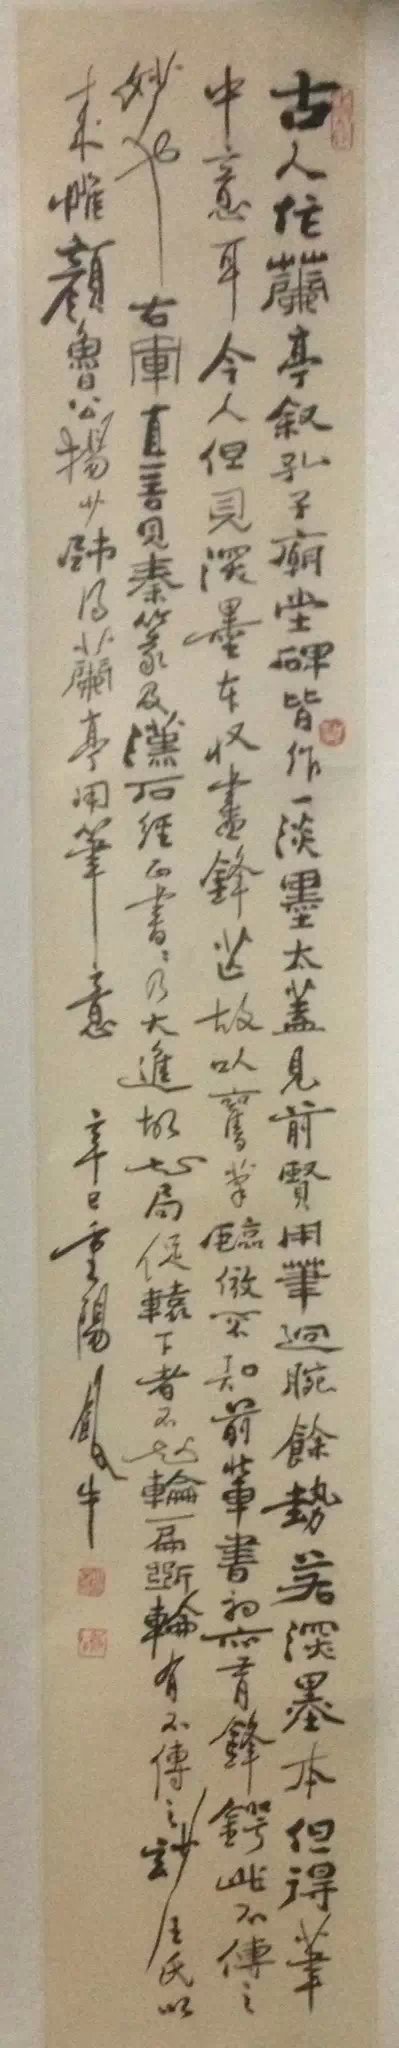 古人作蘭亭叙孔子廟堂碑皆作一淡墨本蓋見前賢用筆迴腕餘勢若深墨本但得筆
中意耳今人但見深墨本收書鋒芒故以舊筆臨倣不知前輩書初亦有鋒鍔此不傳之
妙也 右軍真書見秦篆及漢石經正書書乃大進故知局促轅下者不知輪扁斲輪有不傳之妙王氏以
來惟顏魯公楊少師得蘭亭用筆意 辛巳重陽 牛